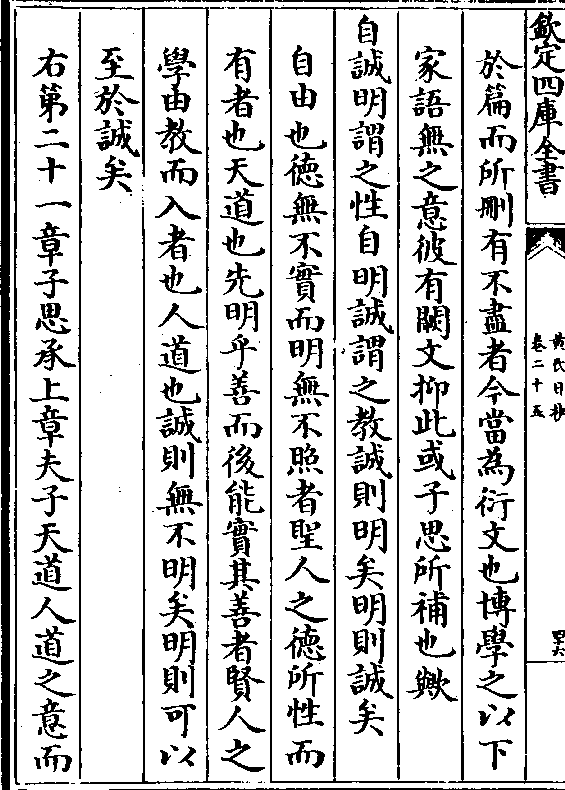 欽定四庫全書
黃氏日抄
卷二十五
四六
於篇而所刪有不盡者今當為衍文也博學之以下
家語無之意彼有闕文抑此或子思所補也歟
自誠明謂之性自明誠謂之教誠則明矣明則誠矣
自由也德無不實而明無不照者聖人之德所性而
有者也天道也先明乎善而後能實其善者賢人之
學由教而入者也人道也誠則無不明矣明則可以
至於誠矣
右第二十一章子思承上章夫子天道人道之意而